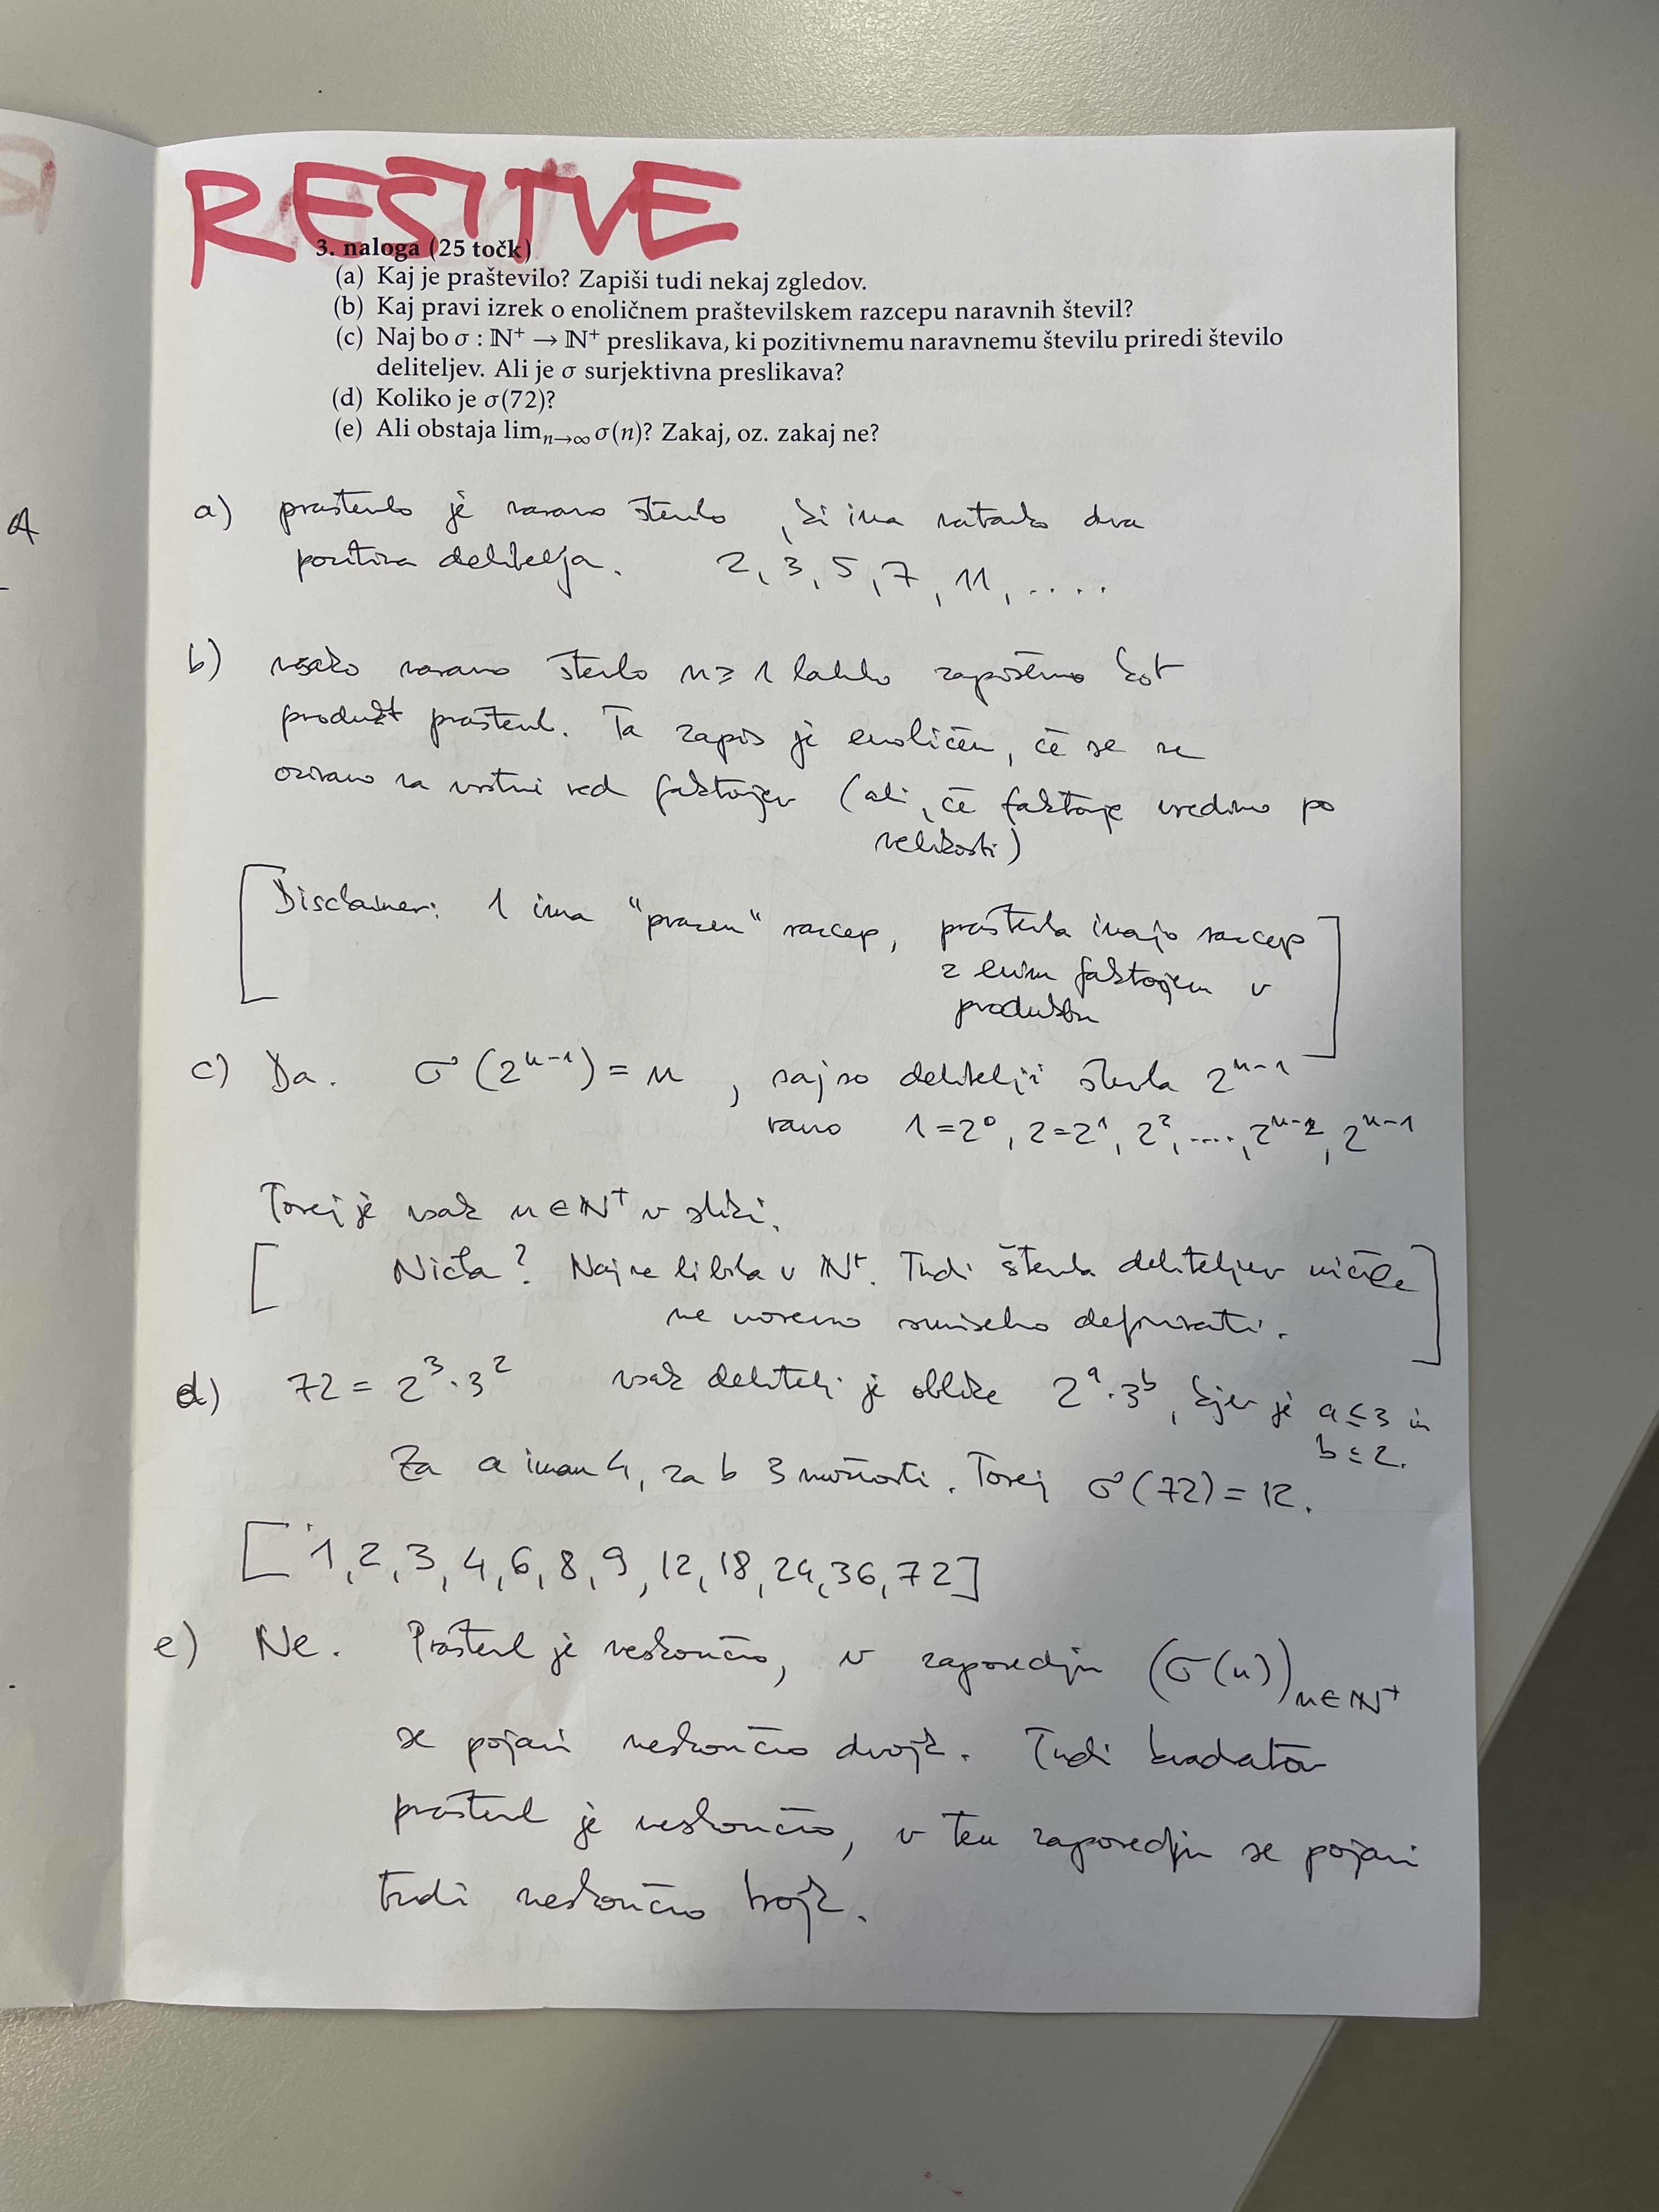 REŠITVE
3. naloga (25 točk)
(a) Kaj je praštevilo? Zapiši tudi nekaj zgledov.
(b) Kaj pravi izrek o enoličnem praštevilskem razcepu naravnih števil?
(c) Naj bo σ : ℕ⁺ → ℕ⁺ preslikava, ki pozitivnemu naravnemu številu priredi število
deliteljev. Ali je σ surjektivna preslikava?
(d) Koliko je σ(72)?
(e) Ali obstaja limₙ→∞ σ(n)? Zakaj, oz. zakaj ne?
A
a) praštevilo je naravno število, ki ima natanko dva
pozitivna delitelja. 2, 3, 5, 7, 11, ....
b) vsako naravno število n ≥ 1 lahko zapišemo kot
produkt praštevil. Ta zapis je enoličen, če se ne
oziramo na vrstni red faktorjev (ali, če faktorje uredimo po
velikosti)
[Disclaimer: 1 ima "prazen" razcep, praštevila imajo razcep
z enim faktorjem v
produktu]
c) Da. σ(2ⁿ⁻¹) = n, saj so delitelji števila 2ⁿ⁻¹
ravno 1=2⁰, 2=2¹, 2², ...., 2ⁿ⁻², 2ⁿ⁻¹
Torej je vsak n ∈ ℕ⁺ v sliki.
[Ničla? Naj ne bi bila v ℕ⁺. Tudi števila deliteljev ničle
ne moremo smiselno definirati.]
d) 72 = 2³·3² vsak delitelj je oblike 2ᵃ·3ᵇ, kjer je a ≤ 3 in
b ≤ 2.
Za a imam 4, za b 3 možnosti. Torej σ(72) = 12.
[1, 2, 3, 4, 6, 8, 9, 12, 18, 24, 36, 72]
e) Ne. Praštevil je neskončno, v zaporedju (σ(n))ₙ∈ℕ⁺
se pojavi neskončno dvojk. Tudi kvadratov
praštevil je neskončno, v tem zaporedju se pojavi
tudi neskončno trojk.